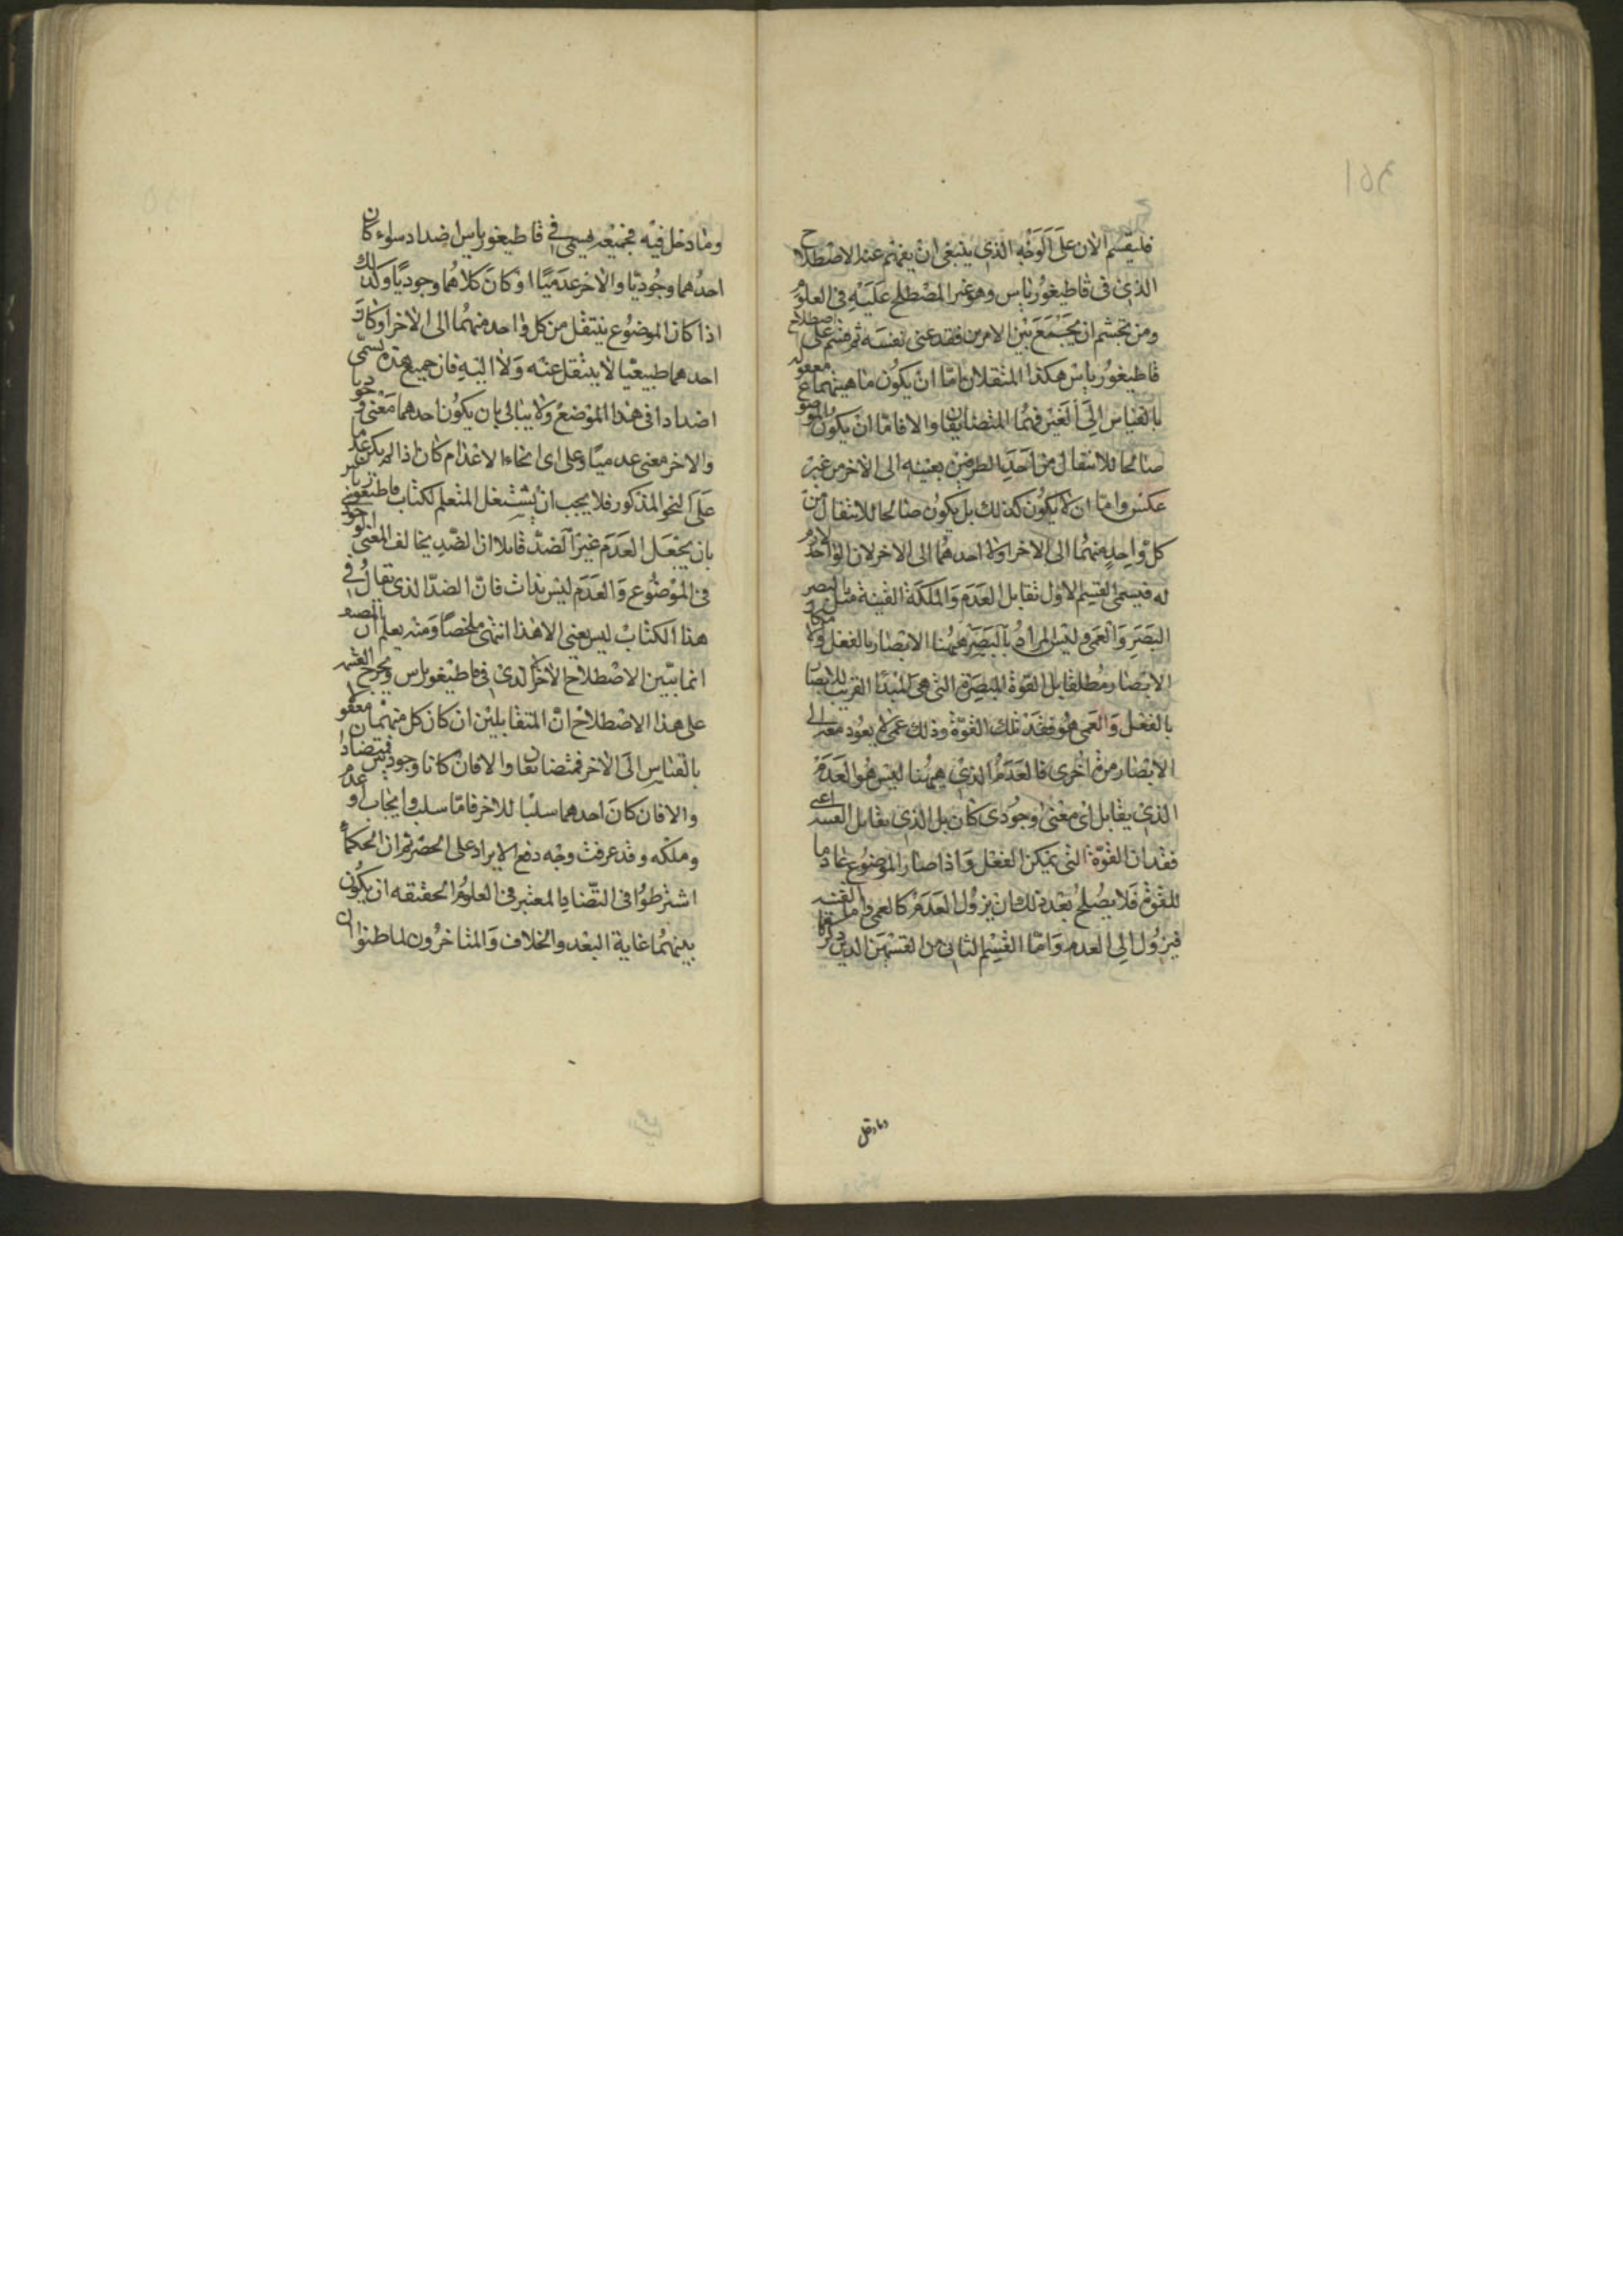 فليقسم الان على الوجه الذى ينبغى ان يفهم عند الاصطلاح
الذى فى قاطيغورياس وهو غير المصطلح عليه فى العلوم
ومن تجشم ان يجمع بين الامرين فقد عنى نفسه ثم قسم على اصطلاح
قاطيغورياس هكذا المتقابلان اما ان يكون ماهيتهما معقوله
بالقياس الى الغير فهما المتضايفان والا فاما ان يكون الموضوع
صالحا للانتقال من احد الطرفين بعينه الى الاخر من غير
عكس واما ان لا يكون كذلك بل يكون صالحا للانتقال من
كل واحد منهما الى الاخر اولا احدهما الى الاخر لان الواحد لازم
له فيسمى القسم الاول تقابل العدم والملكة القنية مثل البصر
البصر والعمى وليس المراد بالبصر ههنا الابصار بالفعل ولا
الابصار مطلقا بل القوة المبصرة التى هى المبدا القريب للابصار
بالفعل والعمى هو فقد تلك القوة وذلك عمى لا يعود معه الى
الابصار مرة اخرى فالعدم الذى ههنا ليس هو العدم
الذى يقابل اى معنى وجودى كان بل الذى يقابل القنية اعنى
فقدان القوة التى يمكن الفعل واذا صار الموضوع عادما
للقوة فلا يصلح بعد ذلك ان يزول العدم كالعمى واما القنية
فيزول الى العدم واما القسم الثانى من القسمين الذين ذكرنا
وما دخل
وما دخل فيه فجميعه يسمى فى قاطيغورياس اضداد سواء كان
احدهما وجوديا والاخر عدميا او كان كلاهما وجوديا وكذلك
اذا كان الموضوع ينتقل من كل واحد منهما الى الاخر او كان
احدهما طبيعيا لا ينتقل عنه ولا اليه فان جميع هذه يسمى
اضدادا فى هذا الموضع ولا يبالى بان يكون احدهما معنى وجوديا
والاخر معنى عدميا وعلى اى انحاء الاعدام كان اذا لم يكن عدما
على النحو المذكور فلا يجب ان يشتغل المتعلم لكتاب قاطيغورياس
بان يجعل العدم غير الضد قايلا ان الضد يخالف المعنى الوجودى
فى الموضوع والعدم ليس بذات فان الضد الذى يقال فى
هذا الكتاب ليس يعنى الا هذا انتهى ملخصا ومنه يعلم ان
انما يبين الاصطلاح الاخر الذى فى قاطيغورياس ويخرج القسمة
على هذا الاصطلاح ان المتقابلين ان كان كل منهما معقولا
بالقياس الى الاخر فمتضايفان والا فان كانا وجوديين فمتضادان
والا فان كان احدهما سلبا للاخر فاما سلب وايجاب او عدم
وملكه وقد عرفت وجه دفع الايراد على الحصر ثم ان الحكماء
اشترطوا فى التضاد المعتبر فى العلوم الحقيقه ان يكون
بينهما غاية البعد والخلاف والمتاخرون لما ظنوا ان